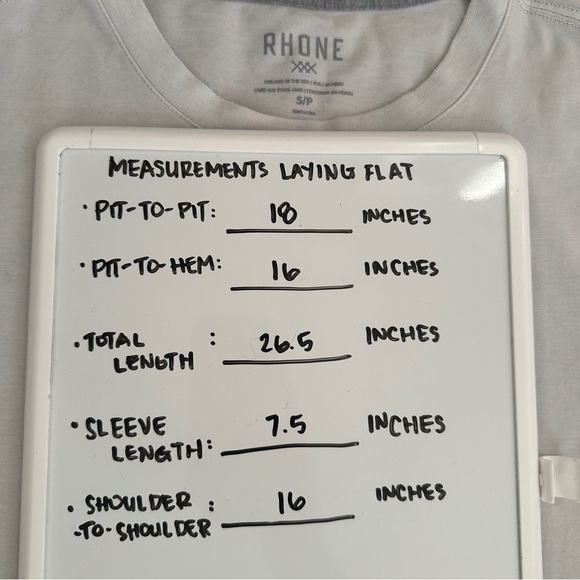 RHONE
CREATED IN THE USA | BUILT IN PERU
S/P
MEASUREMENTS LAYING FLAT
• PIT-TO-PIT: 18 INCHES
• PIT-TO-HEM: 16 INCHES
• TOTAL LENGTH : 26.5 INCHES
• SLEEVE LENGTH: 7.5 INCHES
• SHOULDER -TO-SHOULDER : 16 INCHES